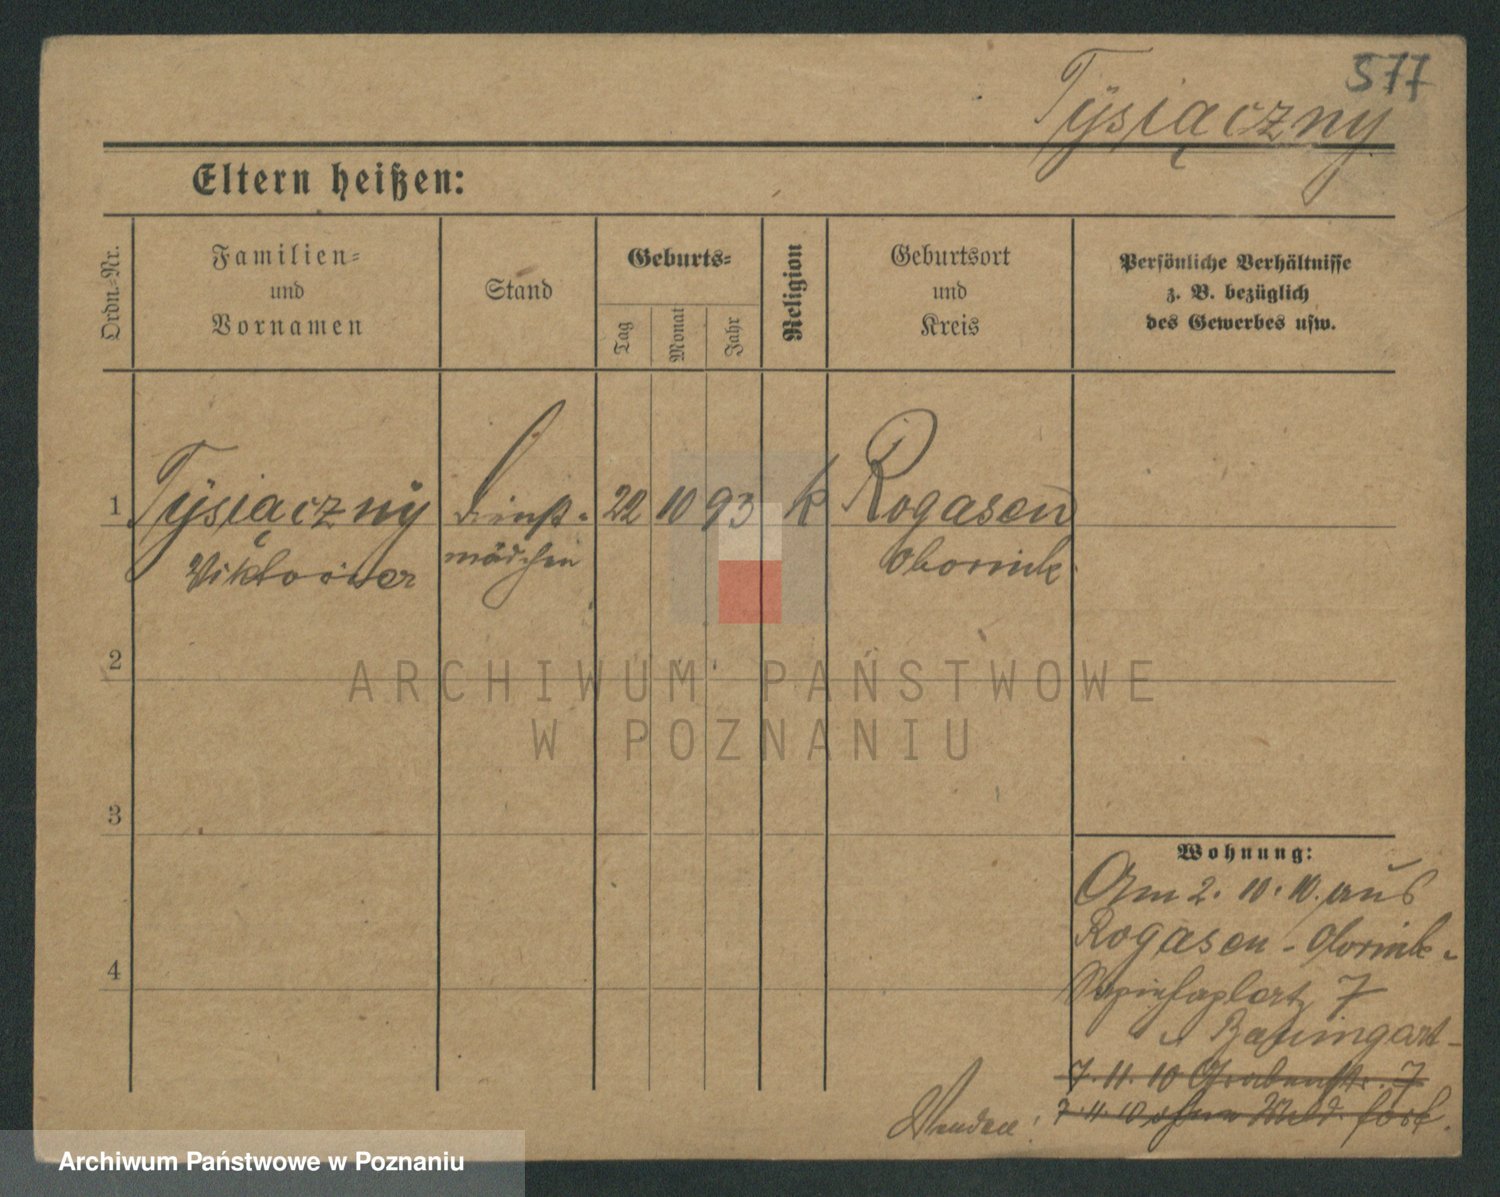 577
Tysiączny
Eltern heißen:
Ordn.-Nr.
Familien-
und
Vornamen
Stand
Geburts-
Tag
Monat
Jahr
Religion
Geburtsort
und
Kreis
Persönliche Verhältnisse
z. B. bezüglich
des Gewerbes usw.
1 Tysiączny Dienst- 22 10 93 k Rogasen
mädchen Obornik
2
3
4
Wohnung:
Am 2. 10. 10. aus
Rogasen - Obornik.
Sapiehaplatz 7
7. 11. 10 Grabenstr. 7
7. 11. 10 ohne Meld. fort.
Wenden!
ARCHIWUM PAŃSTWOWE
W POZNANIU
Archiwum Państwowe w Poznaniu